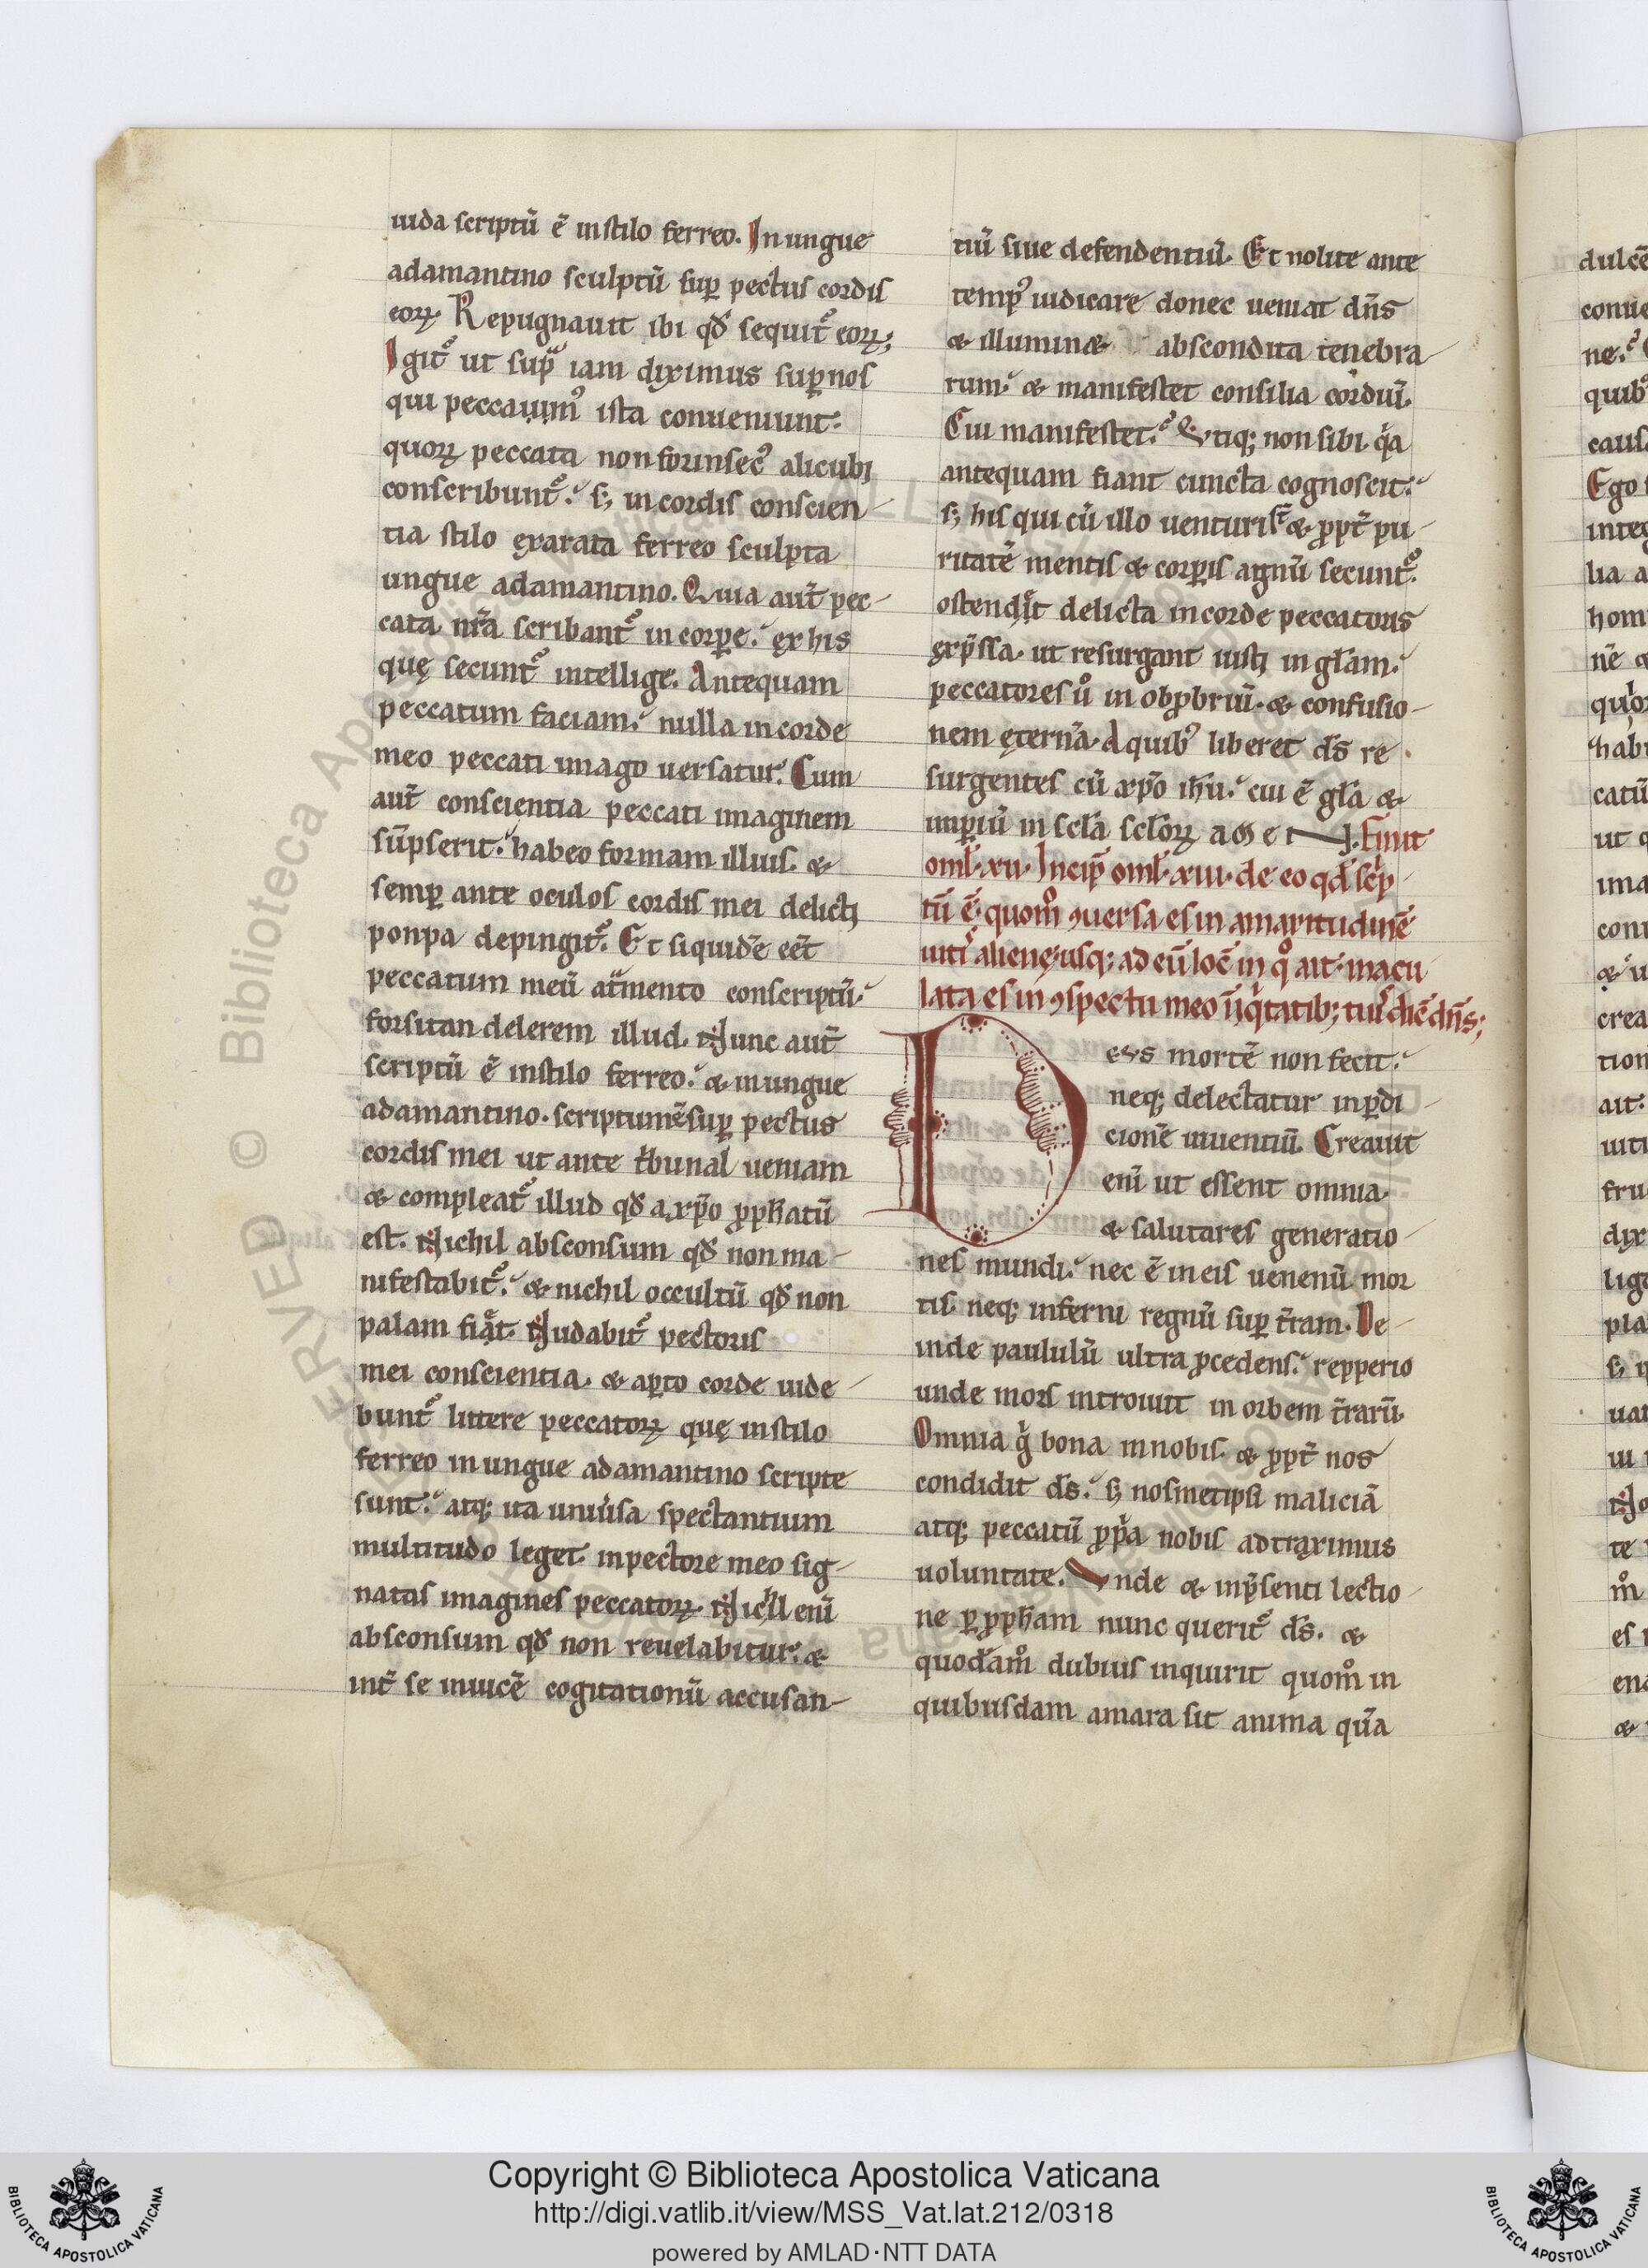 iuda scriptū ē in stilo ferreo. In ungue
adamantino sculptū suꝑ pectus cordis
eoꝝ. Repugnauit ibi qđ sequit᷑ eoꝝ;
Igit᷑ ut supͣ iam diximus suꝑ nos
qui peccauimꝰ ista conueniunt:
quoꝝ peccata non forinsecꝰ alicubi
conscribunt᷑. s; in cordis conscien-
tia stilo exarata ferreo sculpta
ungue adamantino. Quia aut̄ pec-
cata nr̄a scribant᷑ in corꝑe. ex his
quę secunt᷑ intellige. Antequam
peccatum faciam. nulla in corde
meo peccati imago uersatur. Cum
aut̄ conscientia peccati imaginem
sūpserit. habeo formam illius. &
semꝑ ante oculos cordis mei delicti
ponpa depingit᷑. Et siquidē eēt
peccatum meū at̾mento conscriptū.
forsitan delerem illud. Nunc aut̄
scriptū ē in stilo ferreo. & in ungue
adamantino. scriptumē suꝑ pectus
cordis mei ut ante t'bunal ueniam
& compleat᷑ illud qđ a xp̄o ꝓpħatū
est. Nichil absconsum qđ non ma-
nifestabit᷑. & nichil occultū qđ non
palam fiat. Nudabit᷑ pectoris
mei conscientia. & aꝑto corde uide-
bunt᷑ littere peccatoꝝ quę in stilo
ferreo in ungue adamantino scripte
sunt. atq; ita uniu'sa spectantium
multitudo leget in pectore meo sig-
natas imagines peccatoꝝ. Nichil enī
absconsum qđ non reuelabitur. &
int̄ se inuicē cogitationū accusan-
tiū siue defendentiū. Et nolite ante
tempꝰ iudicare donec ueniat dn̄s
& illumin& abscondita tenebra-
rum. & manifestet consilia cordiū.
Cui manifestet. Vtiq; non sibi qͥa
antequam fiant cuncta cognoscit.
s; his qui cū illo uenturi s̄t & ꝓpt̄ pu-
ritatē mentis & corꝑis agnū secunt᷑.
ostendit delicta in corde peccatoris
exp̄ssa. ut resurgant iusti in gl̄am.
peccatores ů in obꝓbriū. & confusio-
nem ęternā. A quibꝰ liberet ds̄ re
surgentes cū xp̄o ih̄u. cui ē gl̄a &
imꝑiū in scl̄a scl̄oꝝ amen. Finit
oml̄. xii. Incip̄ oml̄. xiii. de eo qđ sc̾p
tū ē. quom̊ ꝯuersa es in amaritudinē
uitis alienę. usq; ad eū locū in qͦ ait. macu
lata es in ꝯspectu meo iniqͥtatib; tuis dic̄ dn̄s;
Deus mortē non fecit.
neq; delectatur in ꝑdi-
cionē uiuentiū. Creauit
enī ut essent omnia.
& salutares generatio-
nes mundi. nec ē in eis uenenū mor
tis. neq; inferni regnū suꝑ t̄ram. De-
inde paululū ultra ꝓcedens. repperio
unde mors introiuit in orbem t̄rarū.
Omnia gͦ bona in nobis. & ꝓpt̄ nos
condidit ds̄. s; nosmetipsi maliciā
atq; peccatū ꝓpͥa nobis adtraximus
uoluntate. Vnde & in p̄senti lectio-
ne ꝑ ꝓpħam nunc querit᷑ ds̄. &
quodam̊ dubius inquirit quom̊ in
quibusdam amara sit anima qūa
Copyright © Biblioteca Apostolica Vaticana
http://digi.vatlib.it/view/MSS_Vat.lat.212/0318
powered by AMLAD·NTT DATA
BIBLIOTECA APOSTOLICA VATICANA
BIBLIOTECA APOSTOLICA VATICANA